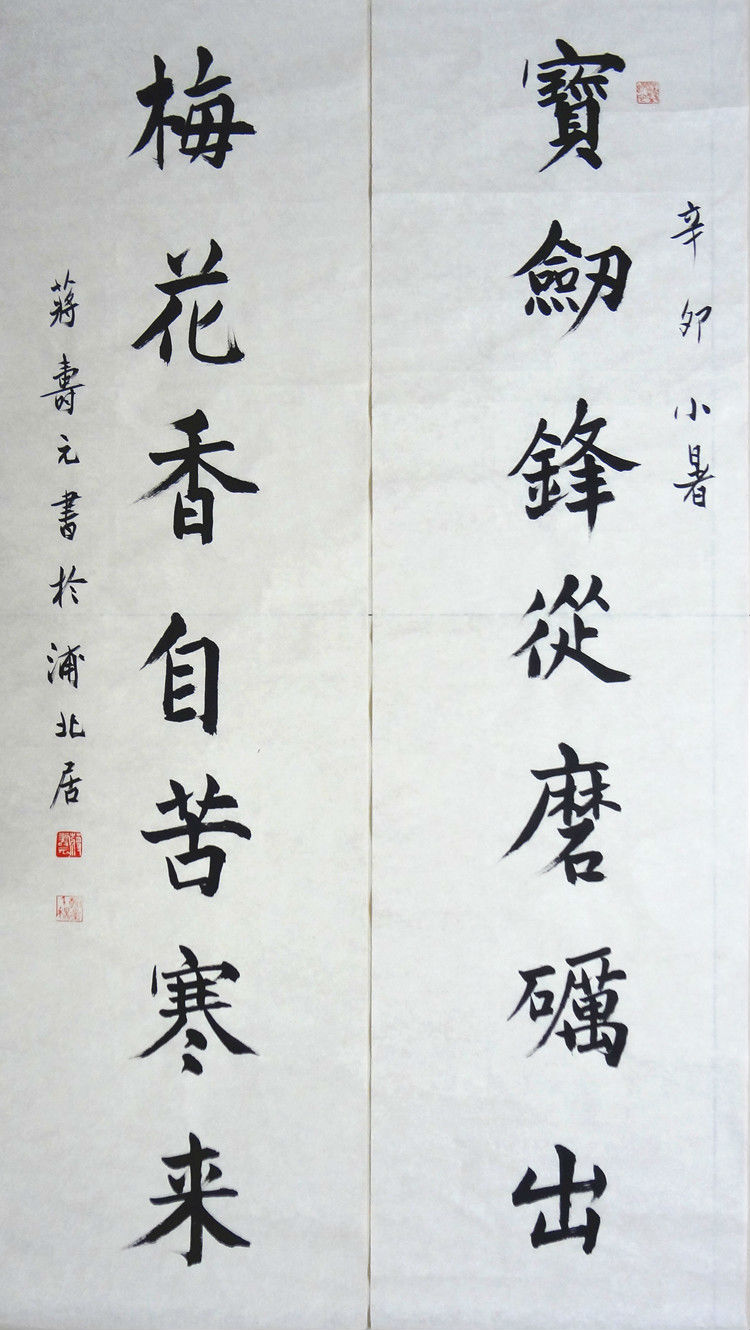 辛卯小暑
寶劒鋒從磨礪出
梅花香自苦寒来
蔣壽元書於浦北居